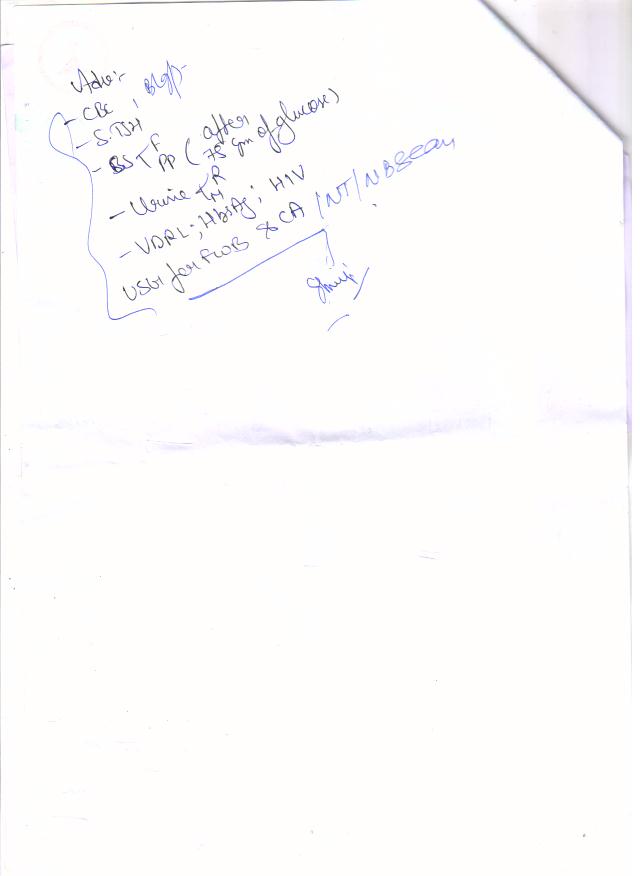 Adv:-
- CBC, Bl gp-
- S.TSH
- BS < F PP (after 75 gm of glucose)
- Urine < R M
- VDRL; HbsAg; HIV
USG for FWB & CA / NT / NB Scan